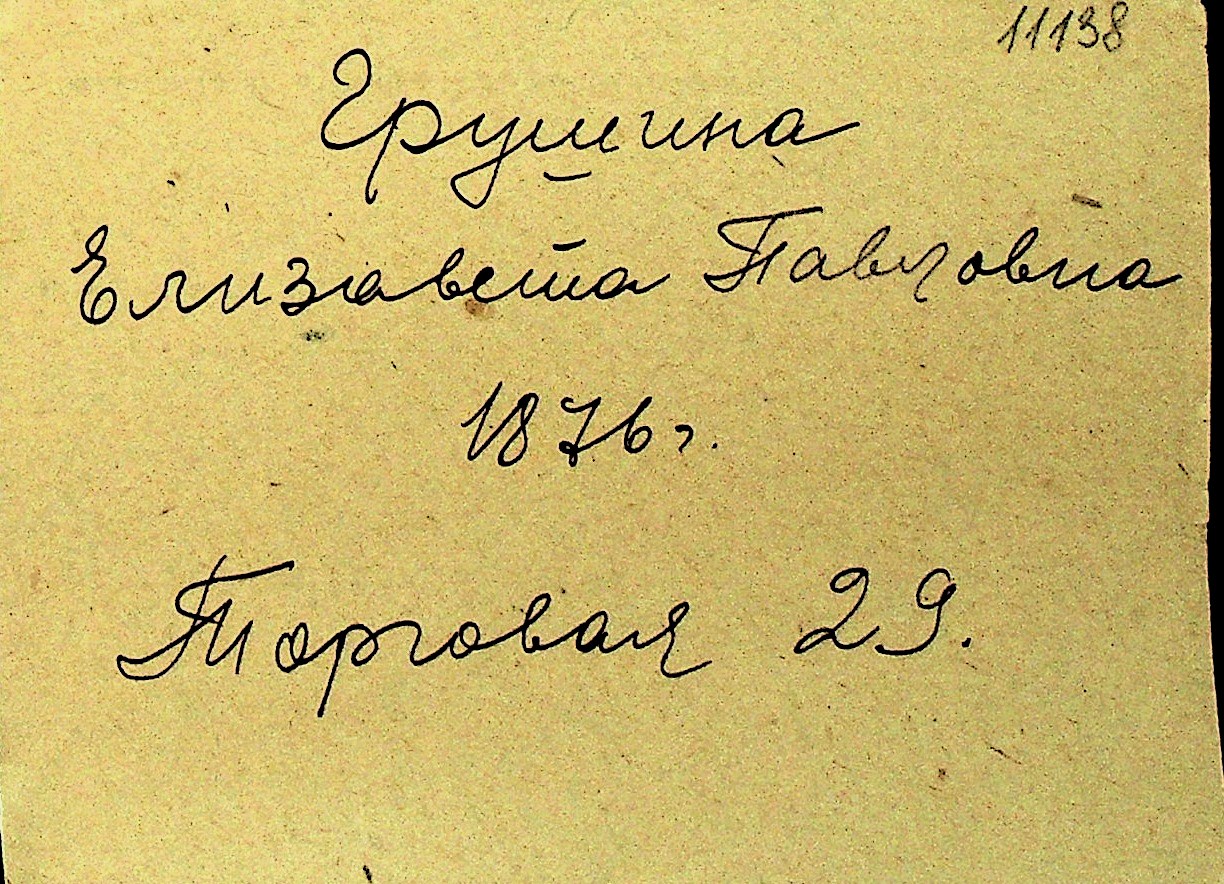 11138
Грушина
Елизавета Павловна
1876 г.
Торговая 29.